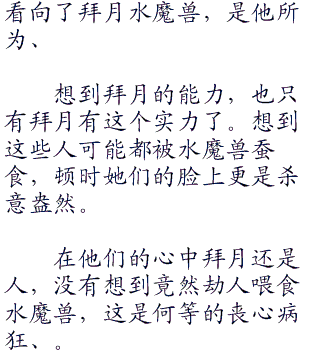 看向了拜月水魔兽，是他所
为、
想到拜月的能力，也只
有拜月有这个实力了。想到
这些人可能都被水魔兽蚕
食，顿时她们的脸上更是杀
意盎然。
在他们的心中拜月还是
人，没有想到竟然劫人喂食
水魔兽，这是何等的丧心病
狂、。